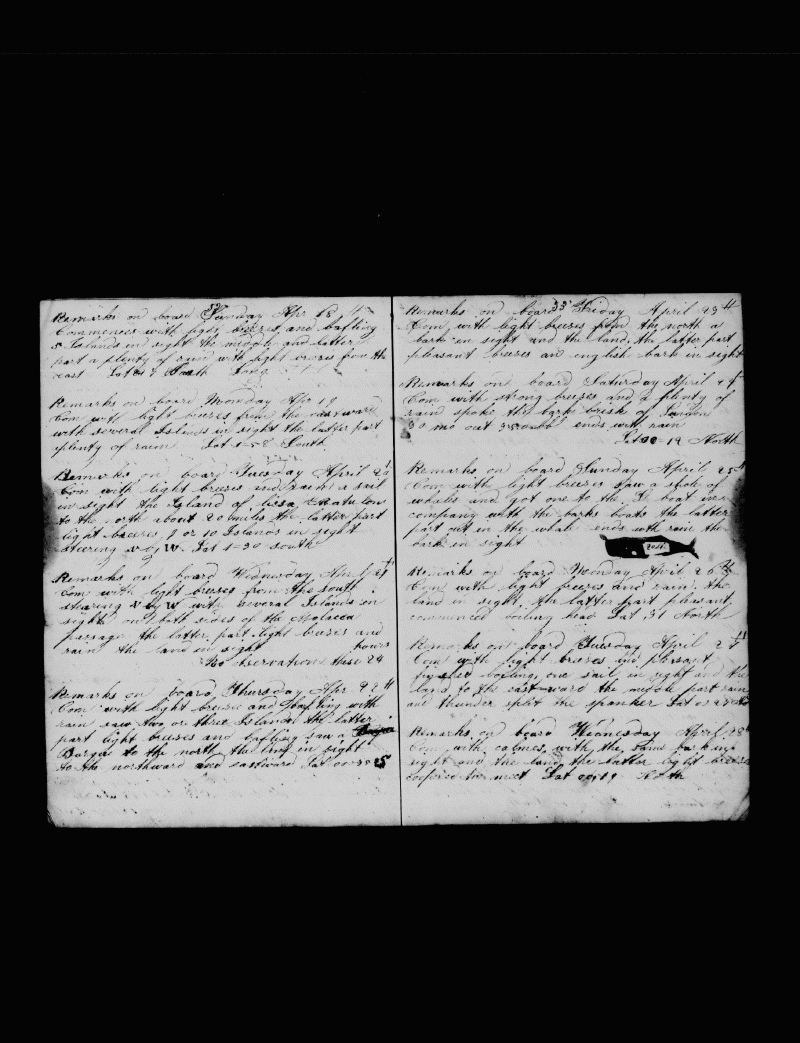 52
Remarks on board Sunday Apr 18th
Commences with light breezes and baffling
5 Islands in sight the middle and latter
part a plenty of rain with light breeses from the
east Lat South Long
Remarks on board Monday Apr 19
Com with light breeses from the eastward
with several Islands in sight the latter part
plenty of rain Lat 1-58 South
Remarks on board Tuesday April 20
Com with light breeses and rain a sail
in sight the Island of
to the north about 20 miles the latter part
light breeses 9 or 10 Islands in sight
stearing W by W. Lat 1-30 south
Remarks on board Wednesday April 21
Com with light breeses from the south
stearing by W with several Islands in
sight on both sides of the Molacca
passage the latter part light breeses and
rain the land in sight hours
No observation these 24
Remarks on board Thursday Apr 22
Com with light breese and baffling with
rain saw two or three Islands the latter
part light breeses and baffling saw a
Barque to the north the land in sight
to the northward and eastward Lat 00-35 S
53
Remarks on board Friday April 23
Com with light breeses from the north a
bark in sight and the land, the latter part
pleasant breeses an english bark in sight
Remarks on board Saturday April 24
Com with strong breeses and a plenty of
rain spoke the bark of London
30 mo out ends with rain
Lat 00-19 North
Remarks on board Sunday April 25
Com with light breeses saw a shole of
whales and got one to the boat in
company with the barks boats the latter
part cut in the whale ends with rain the
bark in sight
Remarks on board Monday April 26
Com with light breeses and rain. the
land in sight, the latter part pleasant
commenced boiling head Lat 31 North
Remarks on board Tuesday April 27
Com with light breeses and plesant
finished boiling, one sail in sight and the
land to the east-ward the midle part rain
and thunder split the spanker Lat 00
Remarks on board Wednesday April 28
Com with calmes with the same bark in
sight and the land, the latter light breeses
coopered the meet Lat 00 19 North